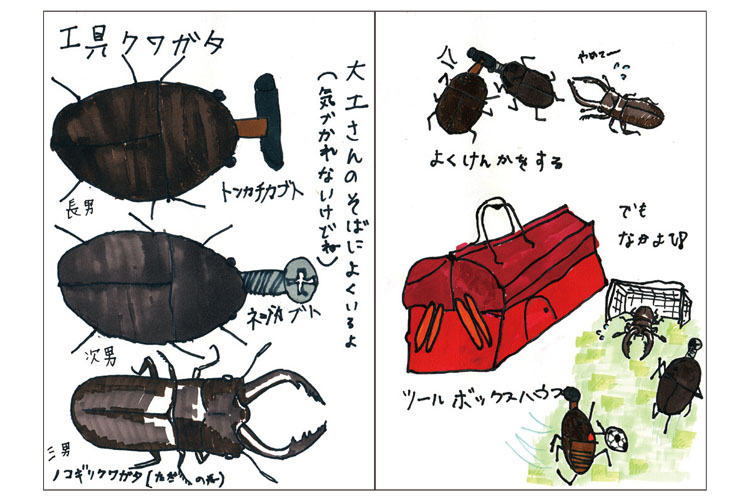 工具クワガタ
大工さんのそばによくいるよ
(気づかれないけどね)
トンカチカブト
長男
ネジカブト
次男
三男
ノコギリクワガタ
やめてー
よくけんかをする
でも
なかよし
ツールボックスハウス